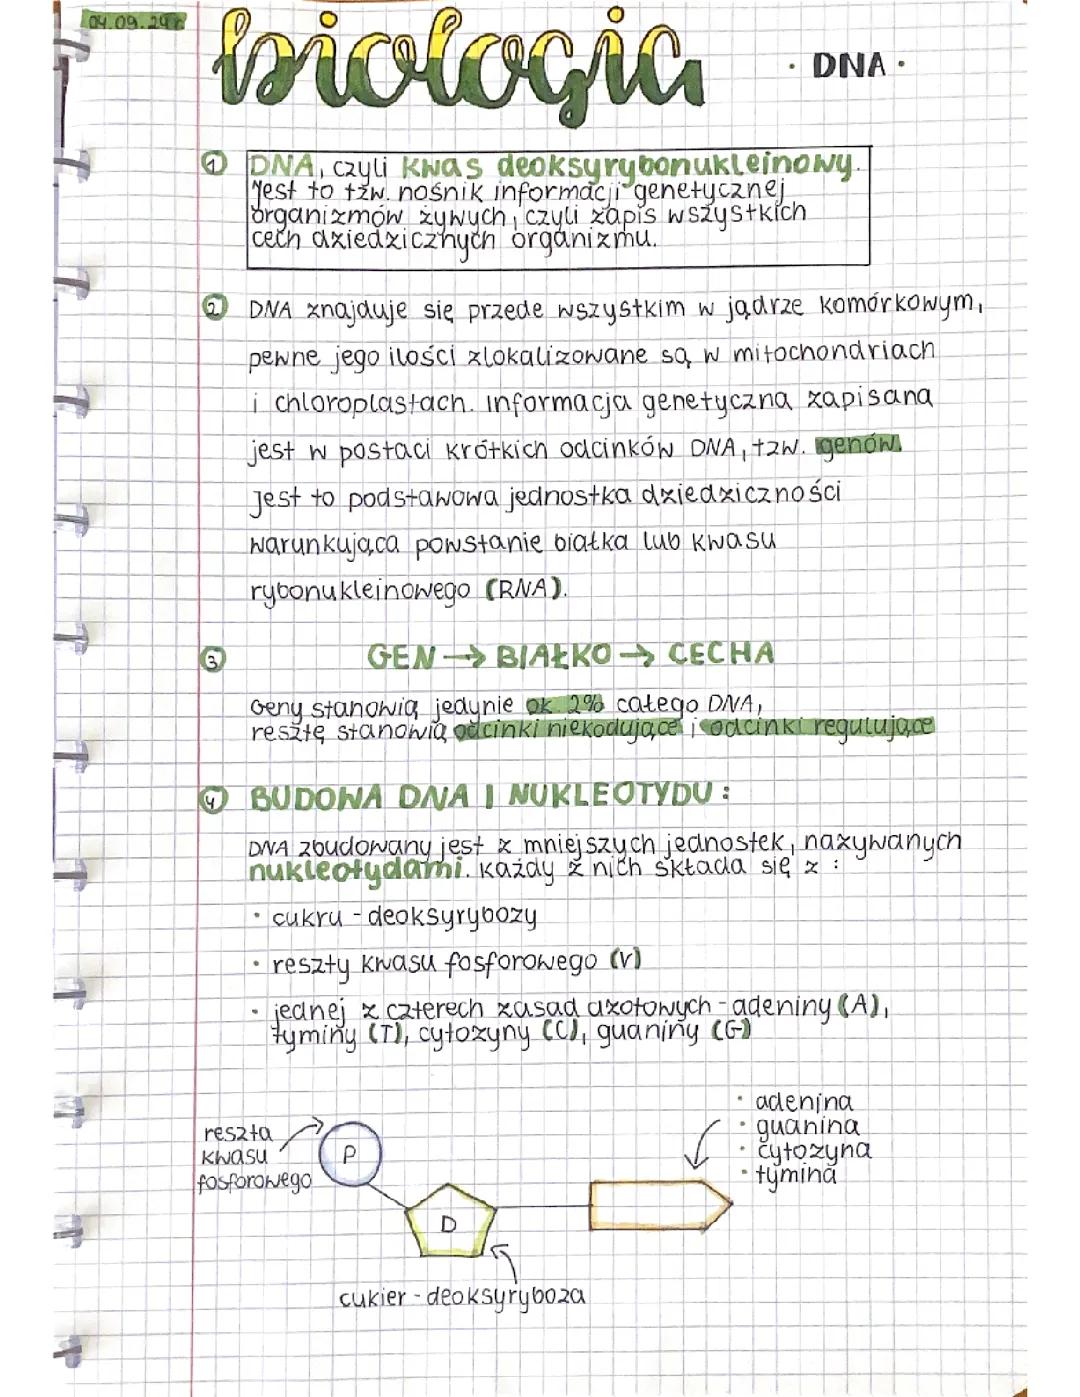 04.09.24r
biologia
· DNA ·
1 DNA, czyli kwas deoksyrybonukleinowy.
Jest to tzw. nośnik informacji genetycznej
organizmów żywych, czyli zapis wszystkich
cech dziedzicznych organizmu.
2 DNA znajduje się przede wszystkim w jądrze komórkowym,
pewne jego ilości zlokalizowane są w mitochondriach
i chloroplastach. informacja genetyczna zapisana
jest w postaci krótkich odcinków DNA, tzw. genów.
Jest to podstawowa jednostka dziedziczności
warunkująca powstanie białka lub kwasu
rybonukleinowego (RNA).
3 GEN → BIAŁKO → CECHA
Geny stanowią jedynie ok 2% całego DNA,
resztę stanowią odcinki niekodujące i odcinki regulujące
4 BUDOWA DNA I NUKLEOTYDU:
DNA zbudowany jest z mniejszych jednostek, nazywanych
nukleotydami. Każdy z nich składa się z :
· cukru - deoksyrybozy
· reszty kwasu fosforowego (V)
· jednej z czterech zasad azotowych - adeniny (A),
tyminy (T), cytozyny (C), guaniny (G)
reszta
kwasu
fosforowego
P
D
· adenina
· guanina
· cytozyna
· tymina
cukier - deoksyryboza